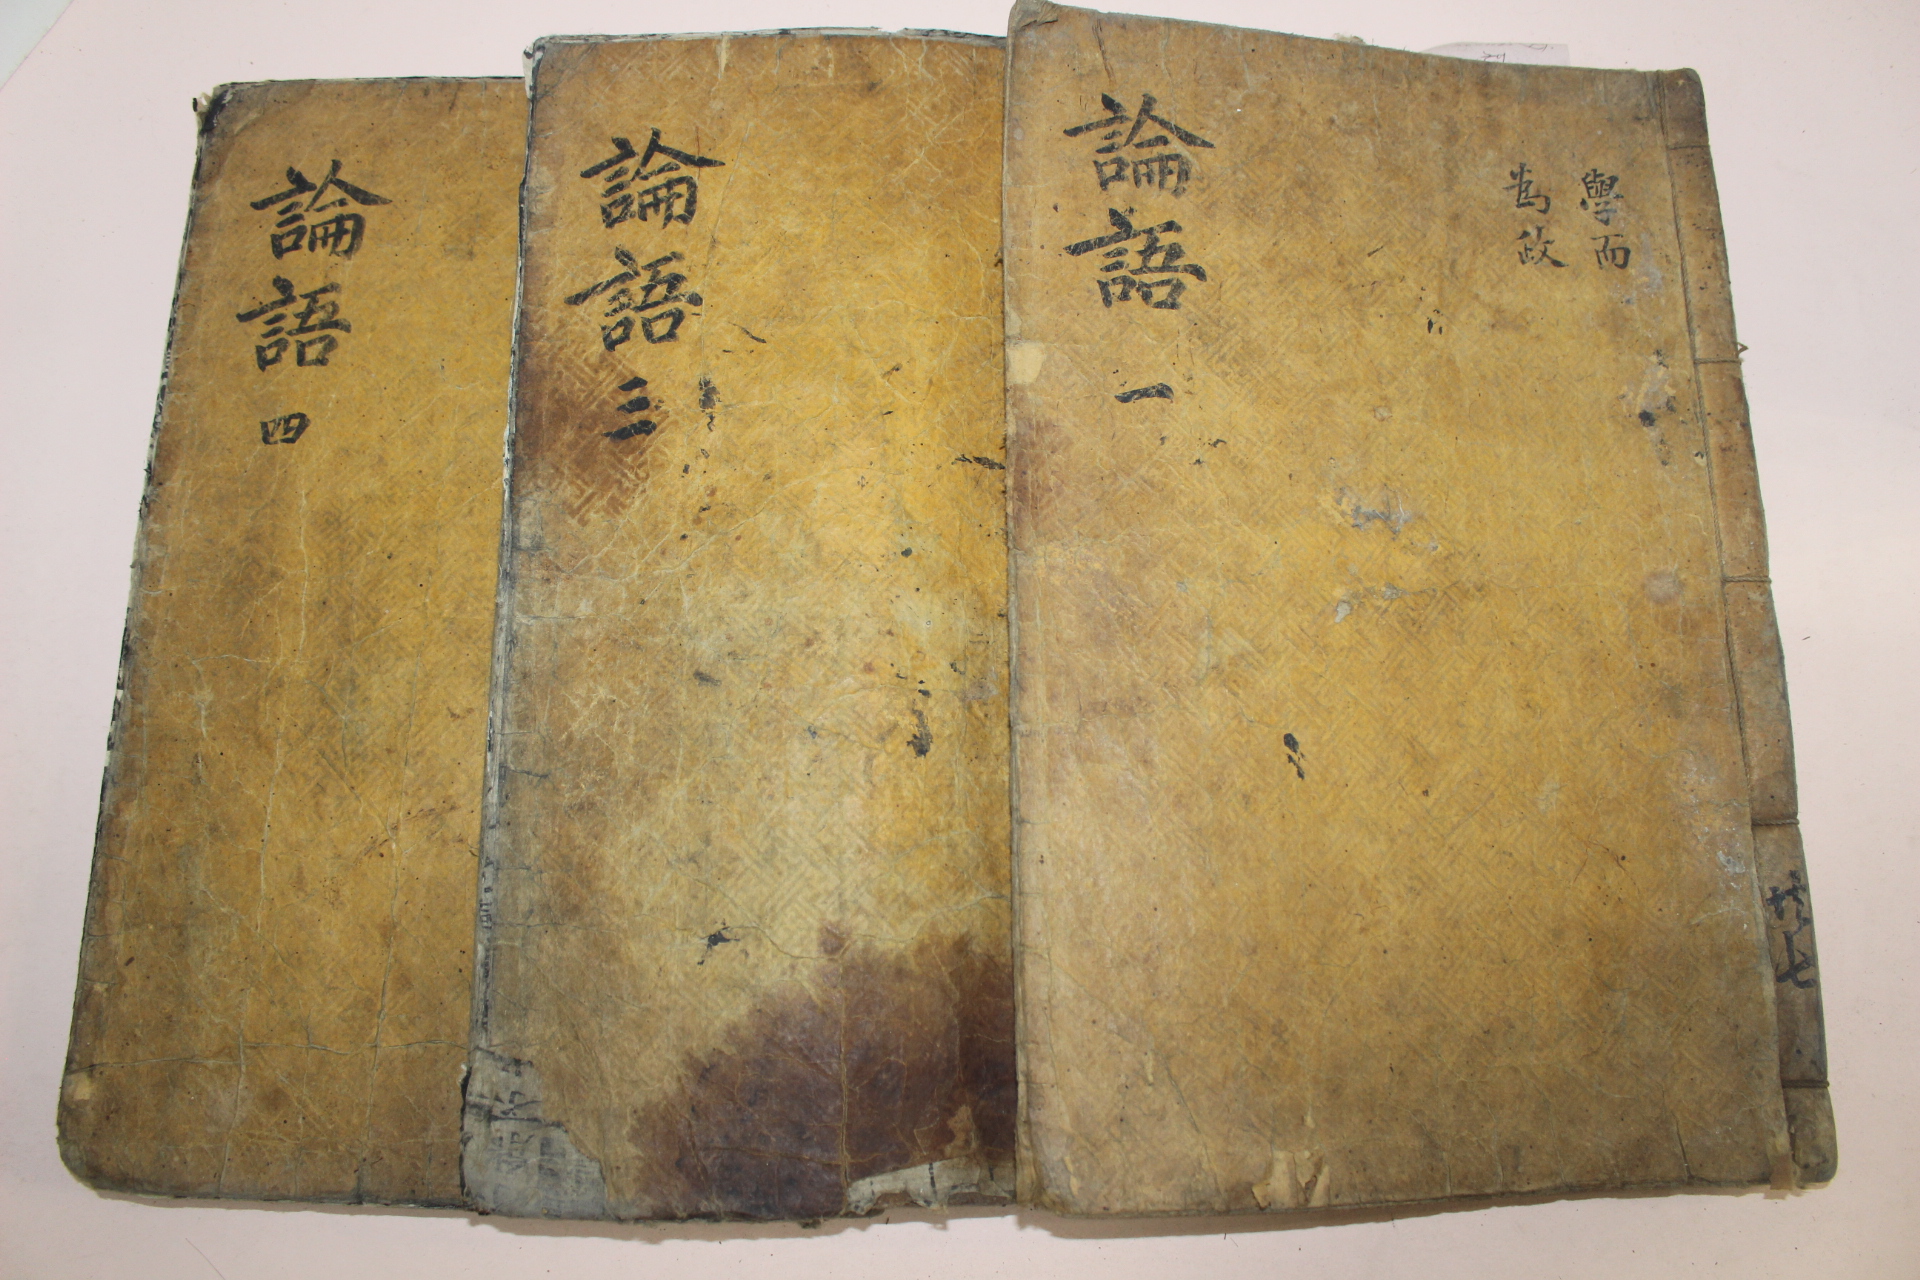 論語 一
學而
爲政
共七
論語 三
論語 四